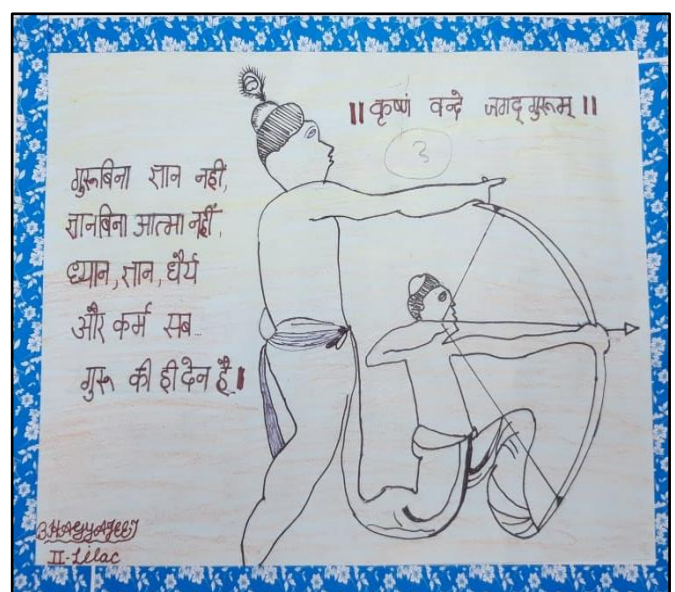 ॥ कृष्णं वन्दे जगद्गुरूम् ॥
3
गुरूबिना ज्ञान नहीं,
ज्ञानबिना आत्मा नहीं,
ध्यान, ज्ञान, धैर्य
और कर्म सब...
गुरू की ही देन है।
II-Lilac